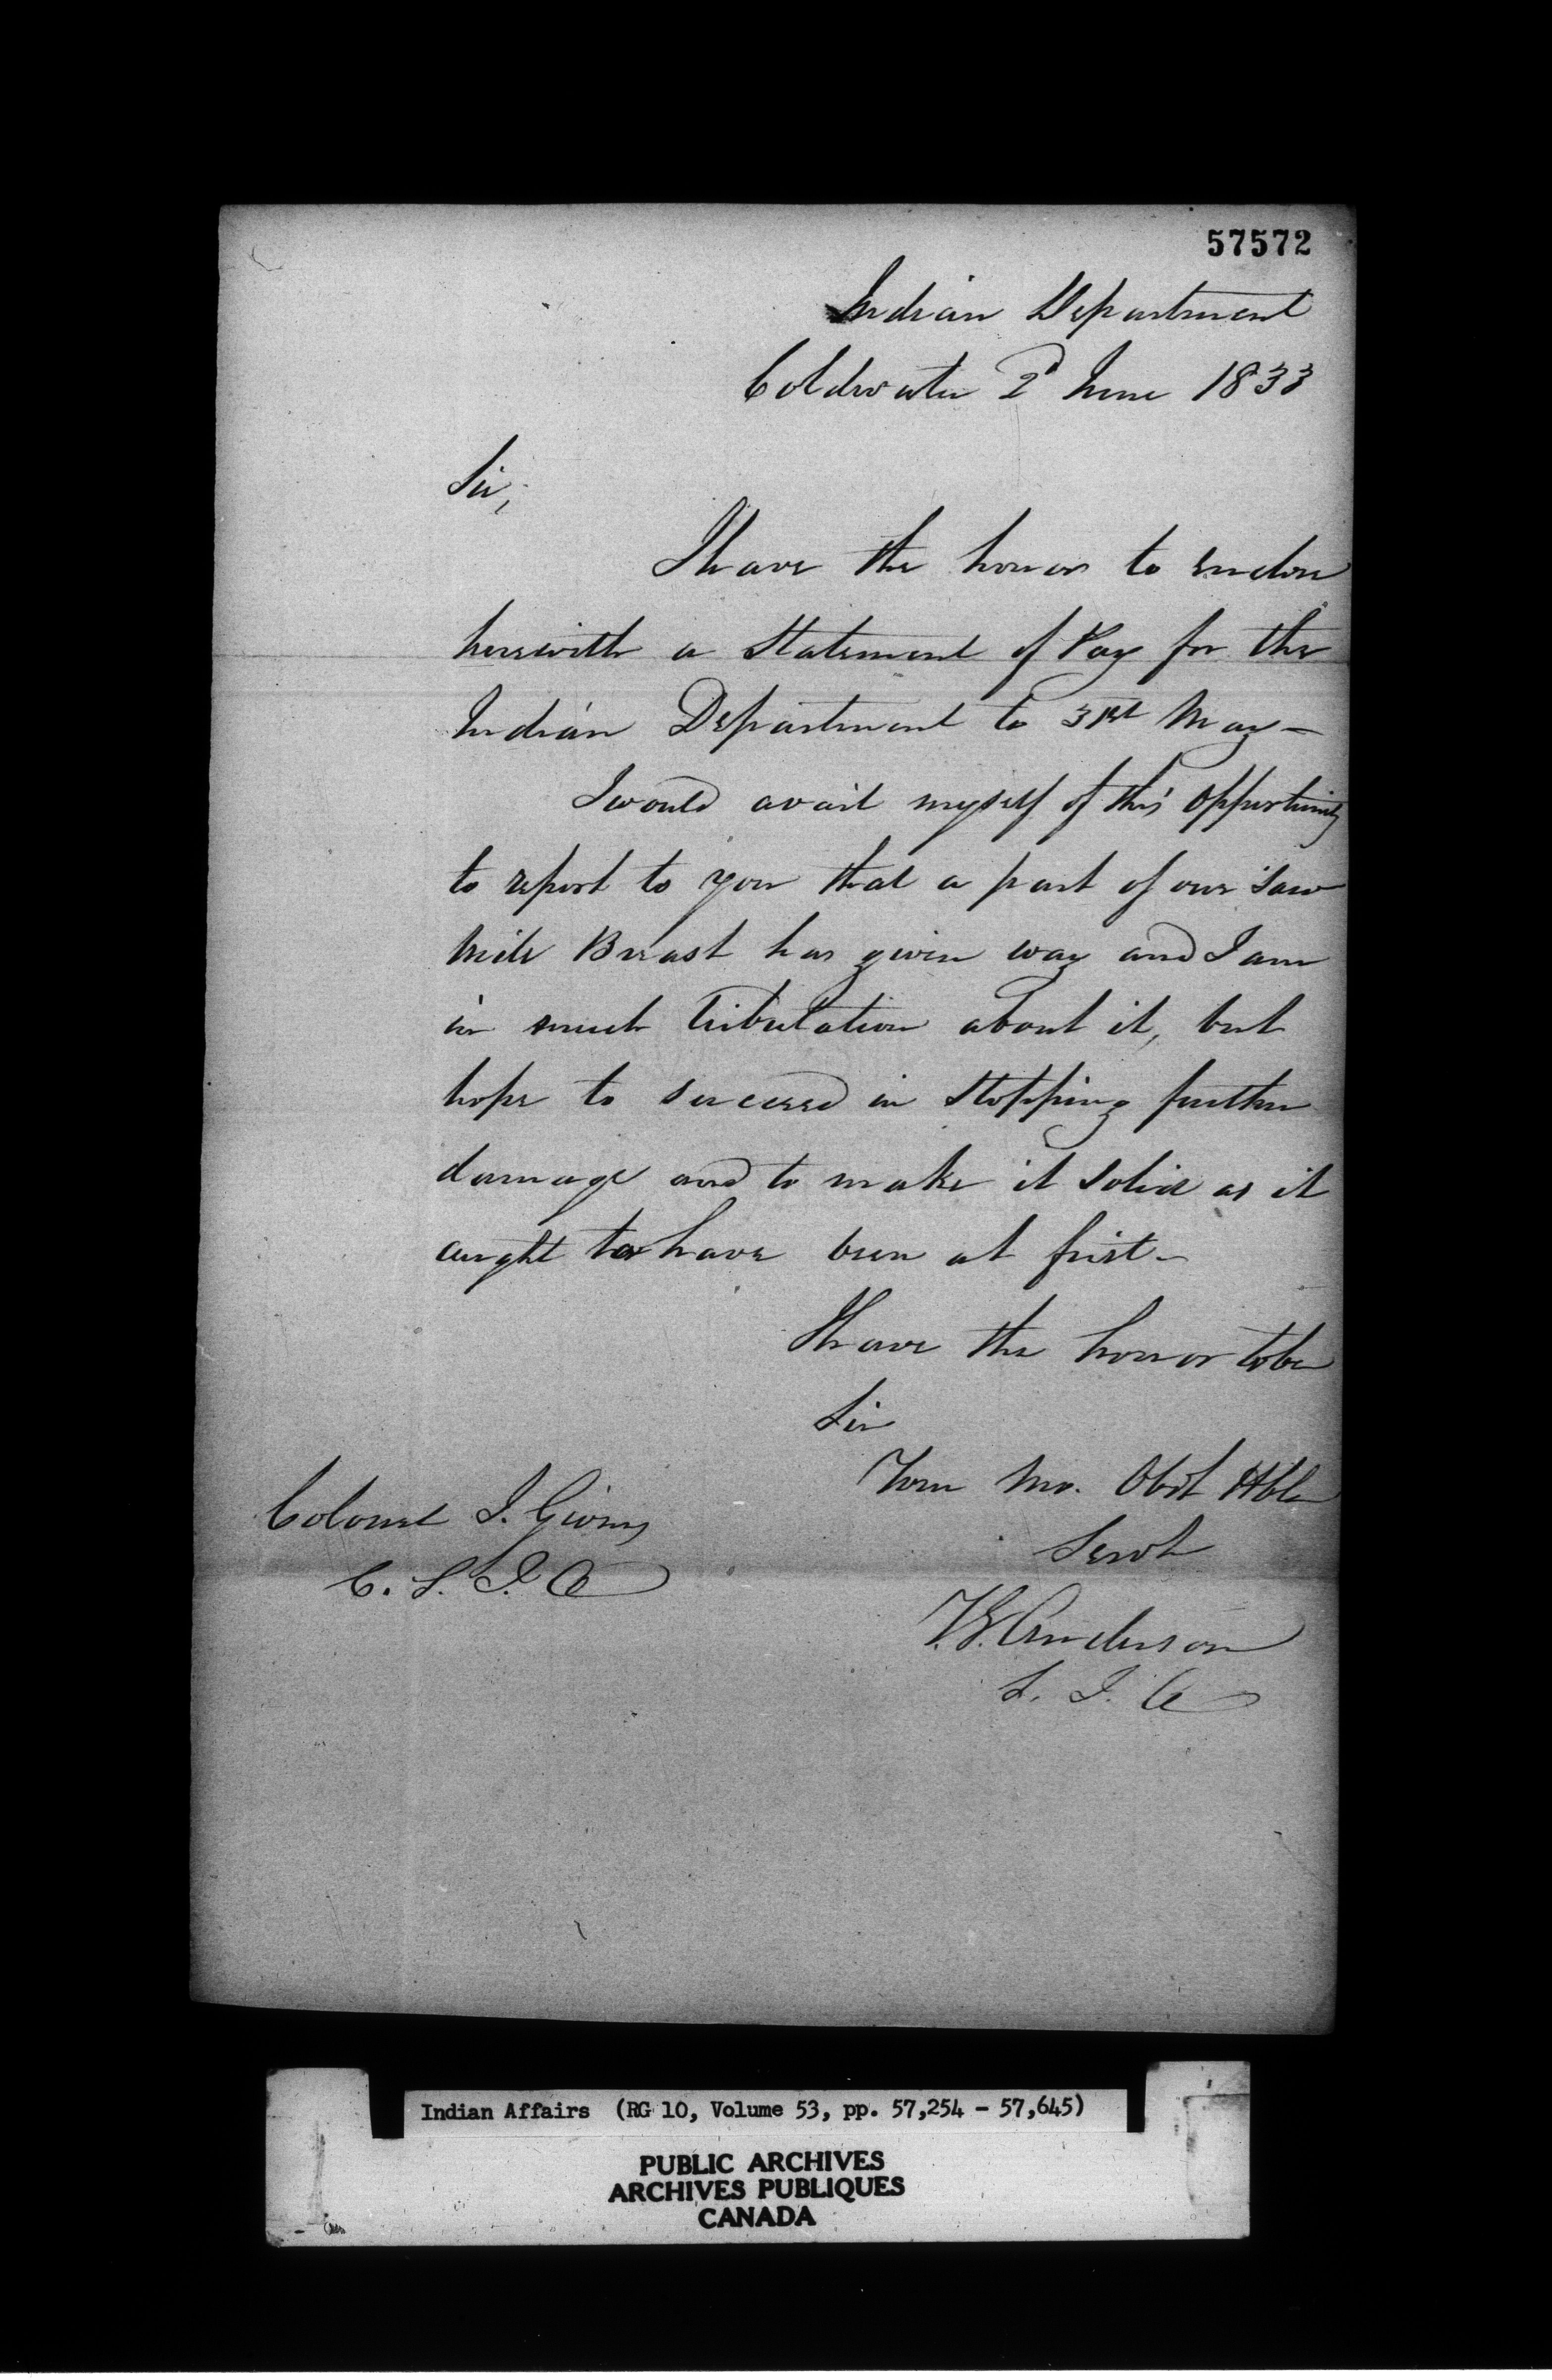 57572
Indian Department
Coldwater 2d June 1833
Sir,
I have the honor to enclose
herewith a Statement of Pay for the
Indian Department to 31st May —
I would avail myself of this opportunity
to report to you that a part of our Saw
Mill Breast has given way and I am
in much tribulation about it, but
hope to succeed in stopping further
damage and to make it solid as it
aught to have been at first —
I have the honor to be
Sir
Your Mo. Obdt Hble
Servt
T. G. Anderson
S. I. A
Colonel J. Givins
C. S. I. A
Indian Affairs (RG 10, Volume 53, pp. 57,254 - 57,645)
PUBLIC ARCHIVES
ARCHIVES PUBLIQUES
CANADA